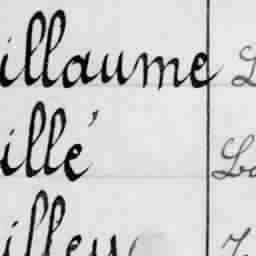 illaume
illé
illey